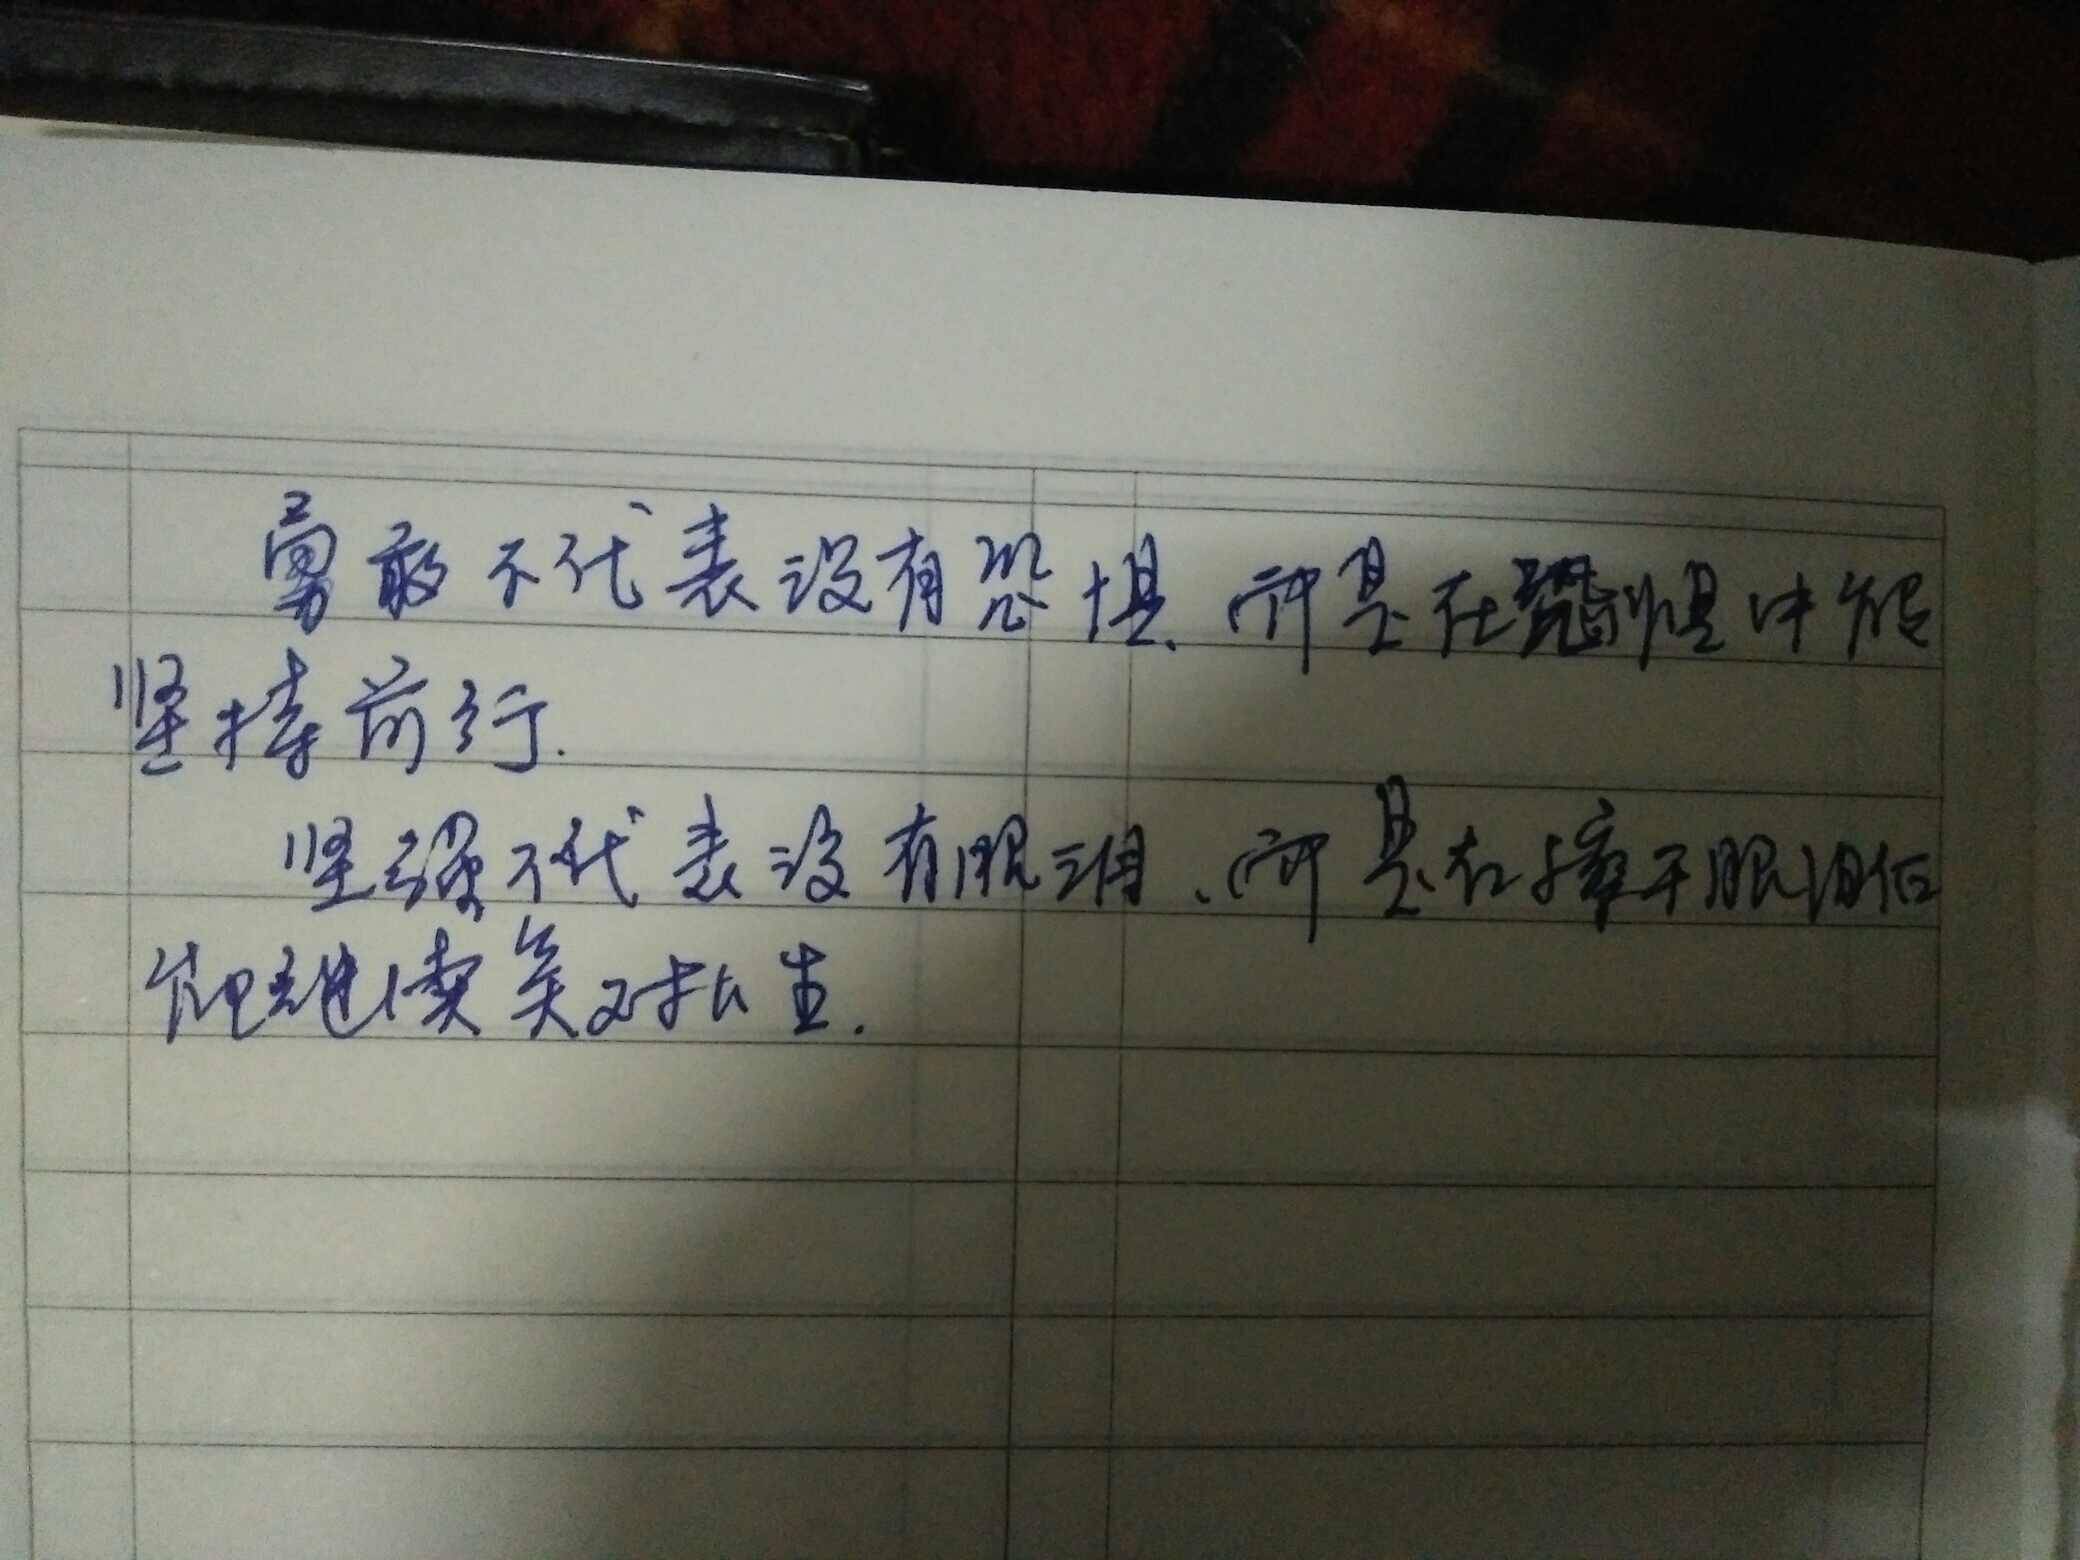 勇敢不代表没有恐惧、而是在恐惧中能
坚持前行.
坚强不代表没有眼泪、而是在擦干眼泪后
能继续笑对人生.